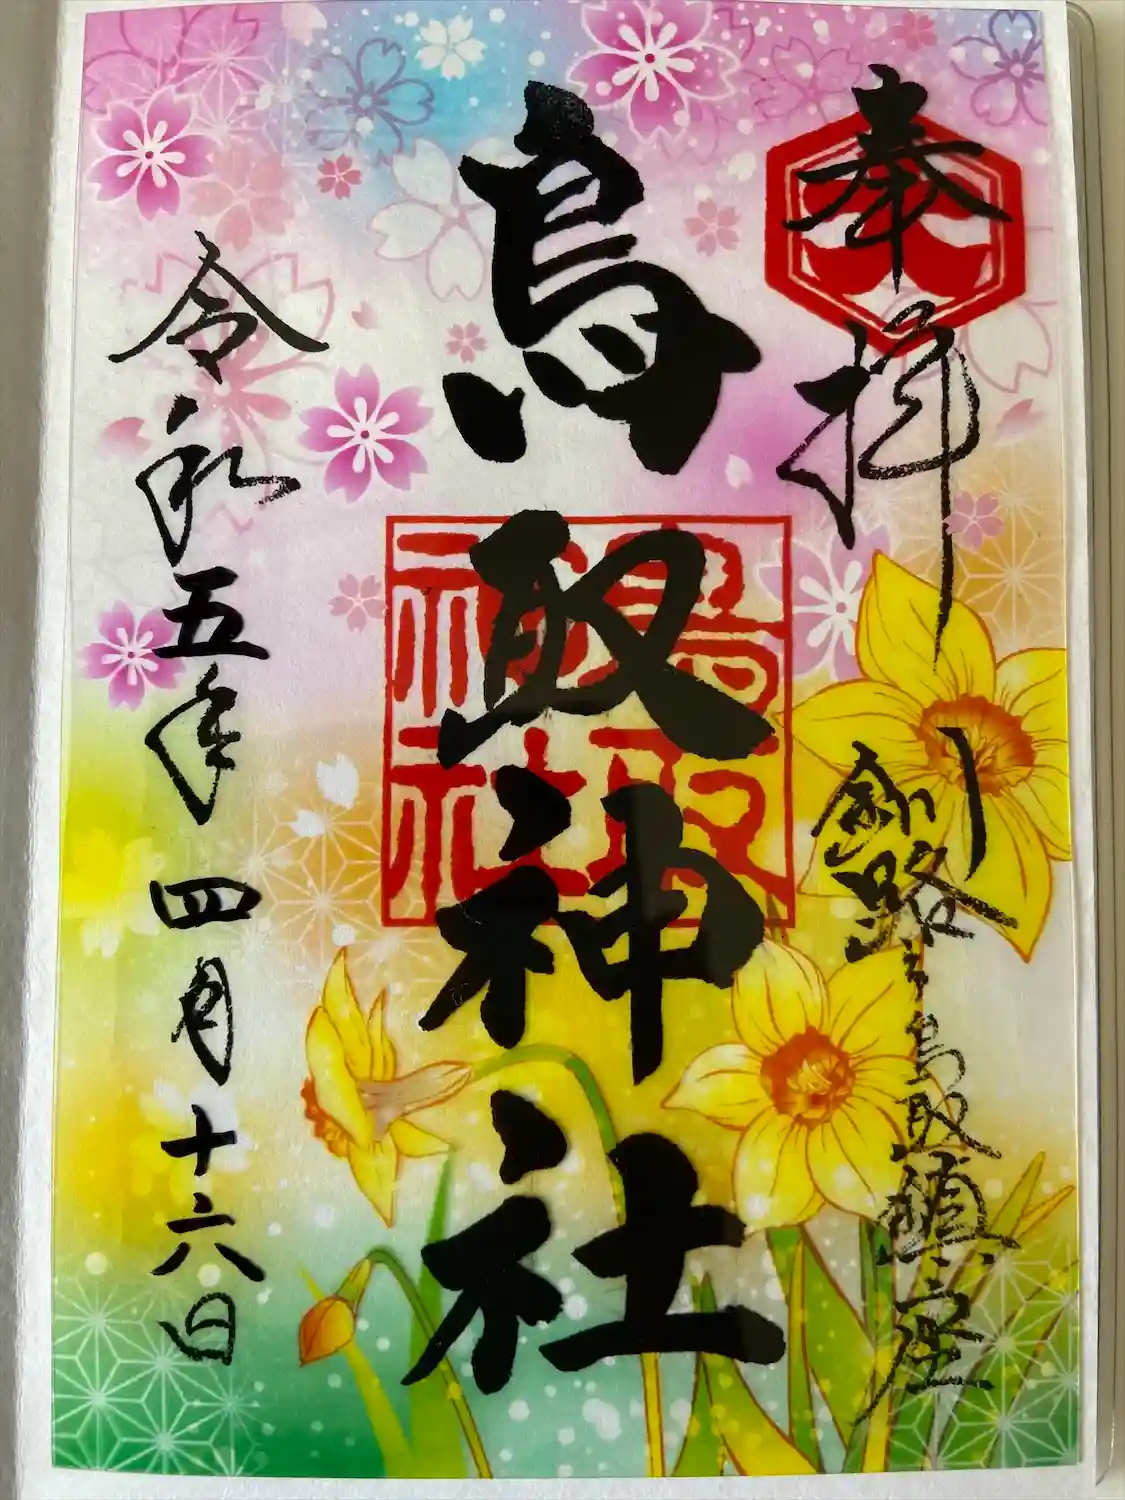 奉拝
釧路之鳥取鎮座
鳥取神社
鳥取神社
令和五年四月十六日